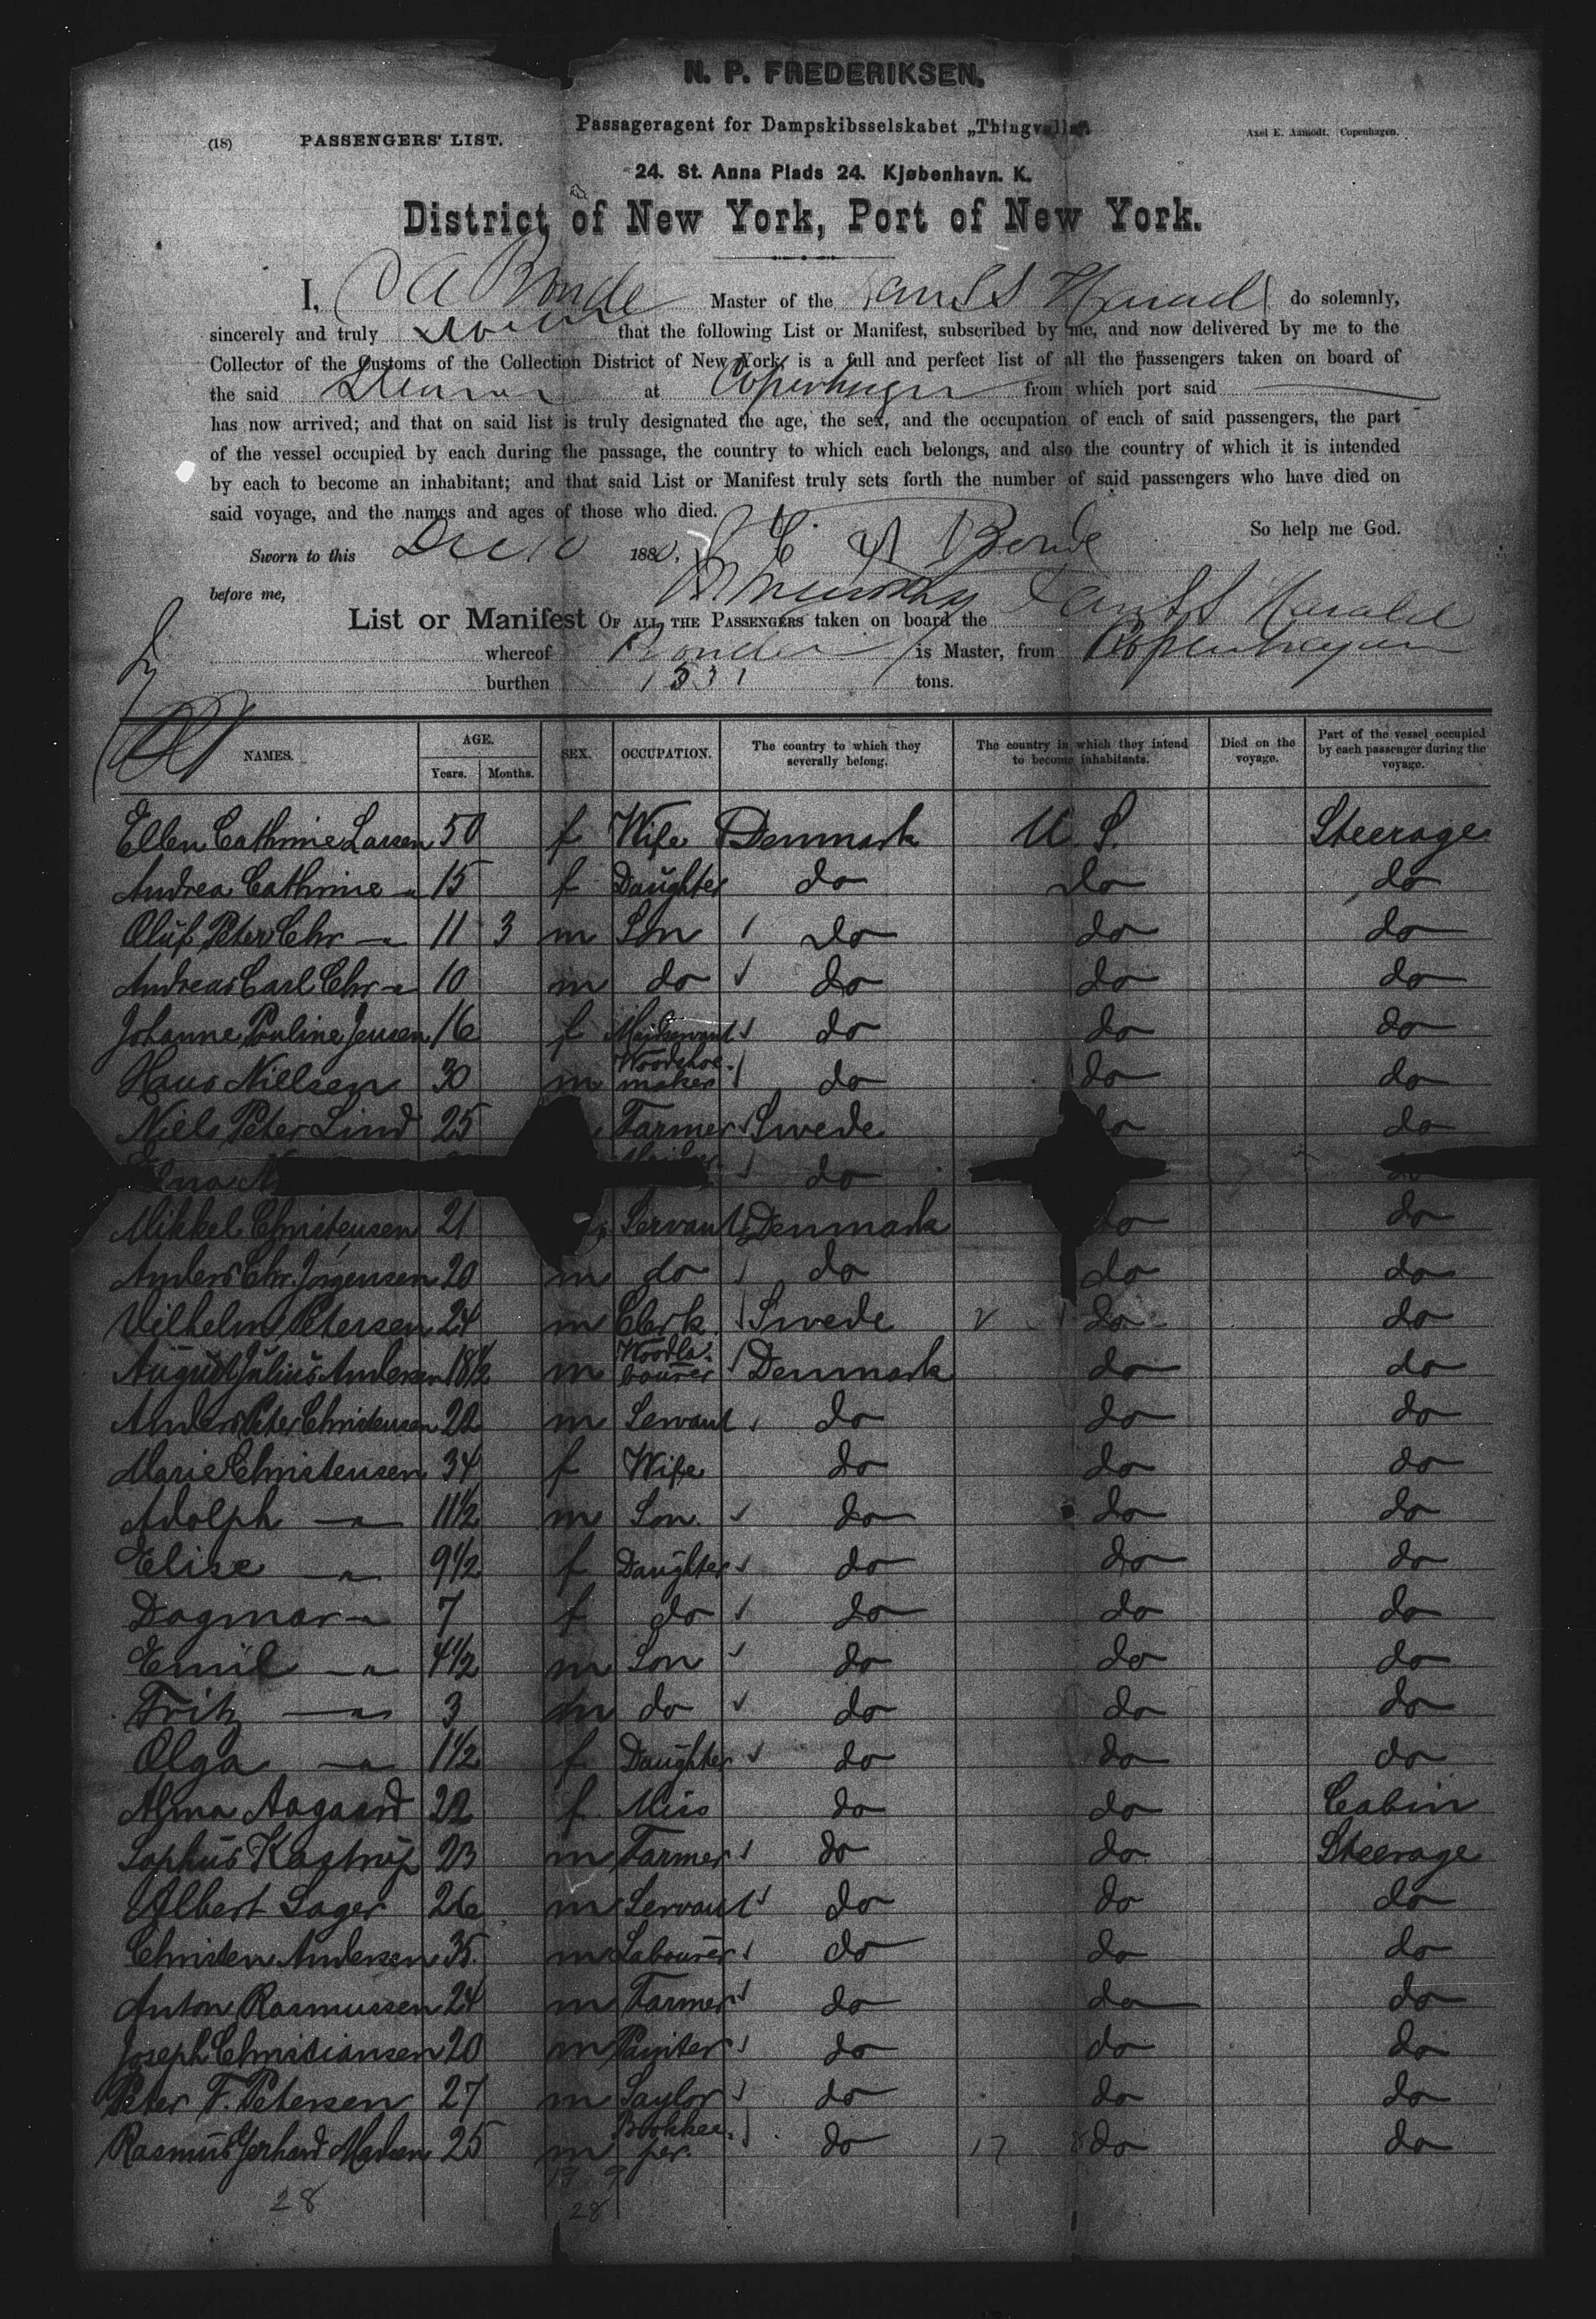 N. P. FREDERIKSEN.
Passageragent for Dampskibsselskabet „Thingvalla“
(18) PASSENGERS' LIST. Axel E. Aamodt. Copenhagen.
24. St. Anna Plads 24. Kjøbenhavn. K.
District of New York, Port of New York.
I, C A Bonde Master of the Dan S S Harald do solemnly,
sincerely and truly swear that the following List or Manifest, subscribed by me, and now delivered by me to the
Collector of the Customs of the Collection District of New York, is a full and perfect list of all the passengers taken on board of
the said Steamer at Copenhagen from which port said
has now arrived; and that on said list is truly designated the age, the sex, and the occupation of each of said passengers, the part
of the vessel occupied by each during the passage, the country to which each belongs, and also the country of which it is intended
by each to become an inhabitant; and that said List or Manifest truly sets forth the number of said passengers who have died on
said voyage, and the names and ages of those who died.
So help me God.
Sworn to this Dec 10 1880, C A Bonde
before me,
List or Manifest OF ALL THE PASSENGERS taken on board the Dan S S Harald
whereof Bonde is Master, from Copenhagen
burthen 1531 tons.
NAMES. AGE. Years. Months. SEX. OCCUPATION. The country to which they severally belong. The country in which they intend to become inhabitants. Died on the voyage. Part of the vessel occupied by each passenger during the voyage.
Ellen Cathrine Larsen 50 f Wife Denmark U. S. Steerage
Andrea Cathrine " 15 f Daughter do do do
Oluf Peter Chr — " 11 3 m Son do do do
Andreas Carl Chr " 10 m do do do do
Johanne Pouline Jensen 16 f Maidservant do do do
Hans Nielsen 30 m Woodshoe-maker do do do
Niels Peter Lind 25 Farmer Swede do do
do do
Mikkel Christensen 21 Servant Denmark do do
Anders Chr. Jørgensen 20 m do do do do
Vilhelm Petersen 24 m Clerk Swede do do
August Julius Andersen 18½ m Woodlabourer Denmark do do
Anders Peter Christensen 22 m Servant do do do
Marie Christensen 34 f Wife do do do
Adolph — " — 11½ m Son do do do
Elise — " — 9½ f Daughter do do do
Dagmar " 7 f do do do do
Emil — " — 4½ m Son do do do
Fritz — " — 3 m do do do do
Olga — " — 1½ f Daughter do do do
Alma Aagaard 22 f Miss do do Cabin
Sophus Kastrup 23 m Farmer do do Steerage
Albert Sager 26 m Servant do do do
Christen Andersen 35 m Labourer do do do
Anton Rasmussen 24 m Farmer do do do
Joseph Christiansen 20 m Painter do do do
Peter F. Petersen 27 m Saylor do do do
Rasmus Gerhard Madsen 25 m Bookkeeper. do 17 8 do do
19 9
28 28